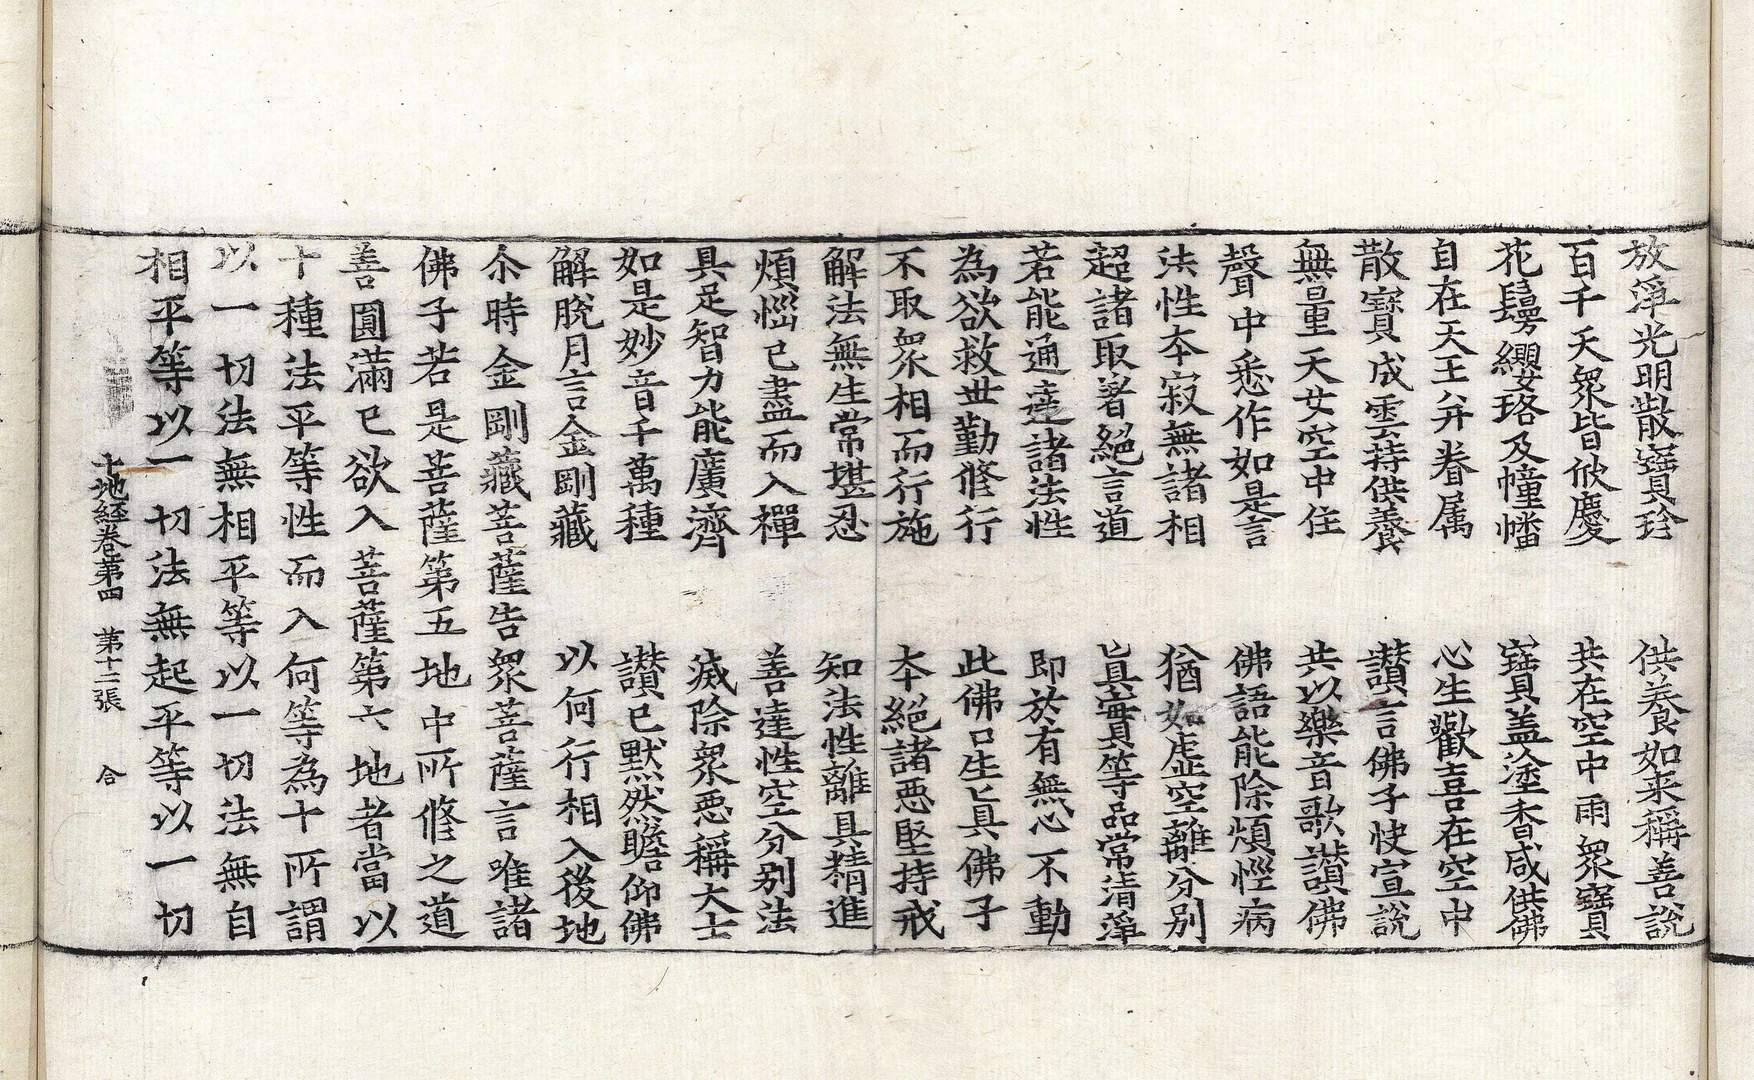 放淨光明散寶珍　供養如来稱善說
百千天衆皆欣慶　共在空中雨衆寶
花鬘纓珞及幢幡　寶盖塗香咸供佛
自在天王并眷属　心生歡喜在空中
散寶成雲持供養　讃言佛子快宣說
無量天女空中住　共以樂音歌讃佛
聲中悉作如是言　佛語能除煩惱病
法性本寂無諸相　猶如虛空離分別
超諸取著絕言道　真實等品常清淨
若能通達諸法性　即於有無心不動
為欲救世勤修行　此佛口生真佛子
不取衆相而行施　本絕諸恶堅持戒
解法無生常堪忍　知法性離具精進
煩惱已盡而入禪　善達性空分別法
具足智力能廣濟　滅除衆恶稱大士
如是妙音千萬種　讃已默然瞻仰佛
解脫月言金剛藏　以何行相入後地
尒時金剛藏菩薩告衆菩薩言唯諸
佛子若是菩薩第五地中所修之道
善圓滿已欲入菩薩第六地者當以
十種法平等性而入何等為十所謂
以一切法無相平等以一切法無自
相平等以一切法無起平等以一切
十地經卷第四　第十二張　合